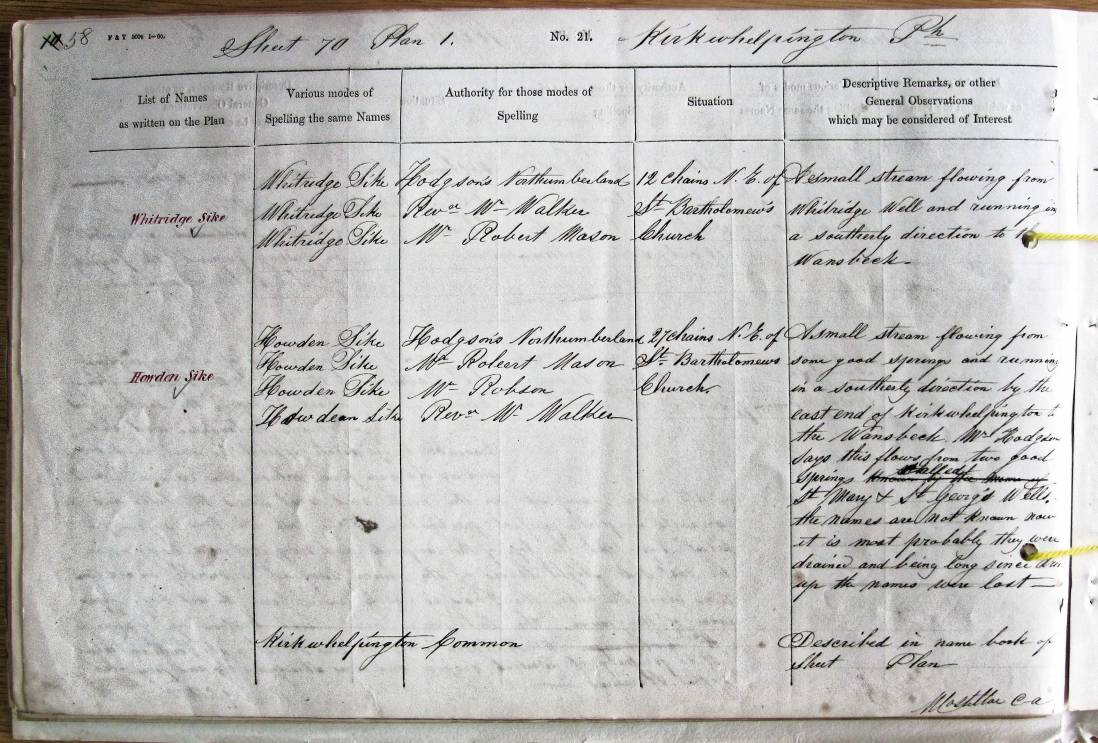 58
F & Y 500g 1—60.
Sheet 70 Plan 1.
No. 21.
Kirkwhelpington Ph
List of Names
as written on the Plan
Various modes of
Spelling the same Names
Authority for those modes of
Spelling
Situation
Descriptive Remarks, or other
General Observations
which may be considered of Interest
Whitridge Sike
Whitridge Sike
Whitridge Sike
Whitridge Sike
Hodgson's Northumberland
Revd. Mr Walker
Mr Robert Mason
12 chains N.E. of
St Bartholomew's
Church
A small stream flowing from
Whitridge Well and running in
a southerly direction to
Wansbeck
Howden Sike
Howden Sike
Howden Sike
Howden Sike
Howdean Sike
Hodgson's Northumberland
Mr Robert Mason
Mr Robson
Revd. Mr Walker
27 chains N.E. of
St Bartholomews
Church
A small stream flowing from
some good springs and running
in a southerly direction by the
east end of Kirkwhelpington to
the Wansbeck. Mr Hodgson
says this flows from two good
springs known by the name of called
St Mary & St George's Wells.
the names are not known now
it is most probably they were
drained and being long since
up the names were lost —
Kirkwhelpington Common
Described in name book of
Sheet Plan
C a